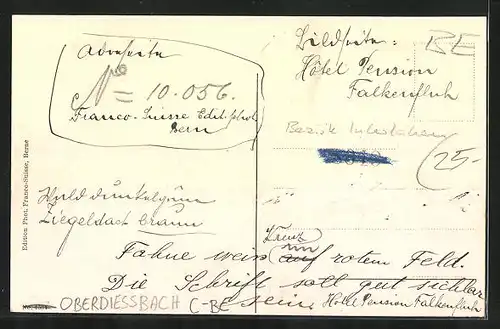 Adresseite
No = 10.056.
Franco-Suisse Edit. phot.
Bern
Bildseite:
Hôtel Pension
Falkenfluh
BE
Bezirk
25-
Edition Phot. Franco-Suisse, Berne
Wald dunkelgrün
Ziegeldach braun
Kreuz
Fahne weis im auf rotem Feld.
Die Schrift soll gut sichtbar
sein.
Hôtel Pension Falkenfluh
OBERDIESSBACH C-BE